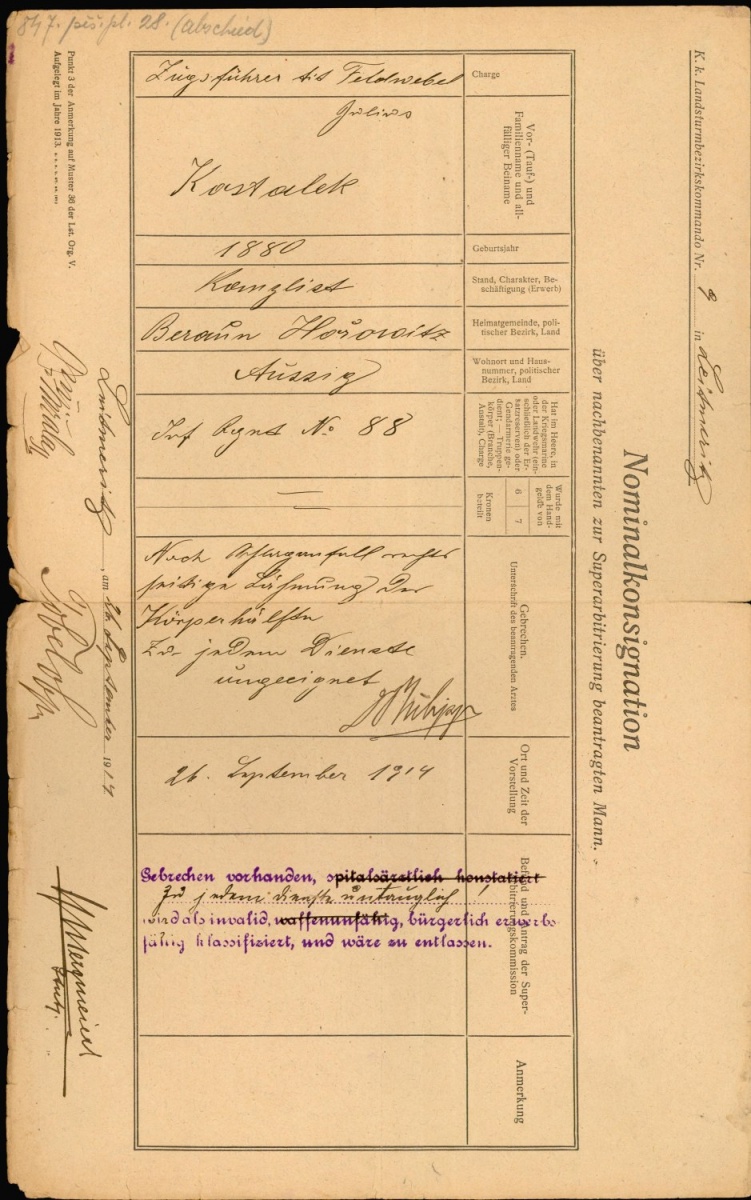 K. k. Landsturmbezirkskommando Nr. 9 in Leitmeritz
Nominalkonsignation
über nachbenannten zur Superarbitrierung beantragten Mann.
Charge
Zugsführer tit Feldwebel
Vor- (Tauf-) und
Familienname und all-
fälliger Beiname
Julius
Kostalek
Geburtsjahr
1880
Stand, Charakter, Be-
schäftigung (Erwerb)
Kanzlist
Heimatgemeinde, poli-
tischer Bezirk, Land
Beraun Horowitz
Wohnort und Haus-
nummer, politischer
Bezirk, Land
Aussig
Hat im Heere, in
der Kriegsmarine
oder Landwehr (ein-
schließlich der Er-
satzreserven) oder
Gendarmerie ge-
dient; — Truppen-
körper (Branche,
Anstalt), Charge
Inf Rgmt No 88
Wurde mit
dem Hand-
geld von
6 7
Kronen
beteilt
Gebrechen.
Unterschrift des beantragenden Arztes
Nach Schlaganfall rechts
seitige Lähmung der
Körperhälfte
Zu jedem Dienste
ungeeignet
Ort und Zeit der
Vorstellung
26. September 1914
Befund und Antrag der Super-
arbitrierungskommission
Gebrechen vorhanden, spitalsärztlich konstatiert
Zu jedem Dienste untauglich
wird als invalid, waffenunfähig, bürgerlich erwerbs-
fähig klassifiziert, und wäre zu entlassen.
Anmerkung
Leitmeritz, am 26 September 1914
Punkt 3 der Anmerkung auf Muster 36 der Lst. Org. V.
Aufgelegt im Jahre 1913.
847. pěš. pl. 28. (Abschied)